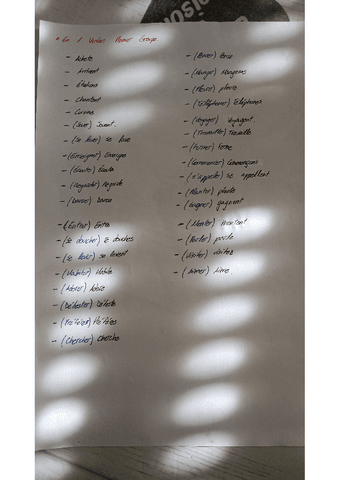 * Ex 1 Verbes Premier Groupe.
- Achète
- Arrivent
- Étudions
- Chantent
- Cuisine
- (Jouer) Jouent.
- (Se laver) se lave
- (Enseigner) Enseigne
- (Écouter) Écoute
- (Regarder) Regarde
- (Danser) Danse
- (Entrer) Entre
- (Se doucher) douches
- (Se lever) se lèvent
- (Habiter) Habite
- (Détester) Déteste
- (Chercher) Cherche
- (Manger) Mangeons
- (Pleurer) pleure
- (Téléphoner) Téléphones
- (Voyager) Voyagent.
- (Travailler) Travaille
- (Fumer) fume
- (Commencer) Commençons
- (S'appeler) se appellent
- (Planter) plante
- (Gagner) gagnent
- (Monter) montent
- (Porter) porte
- (Visiter) visites